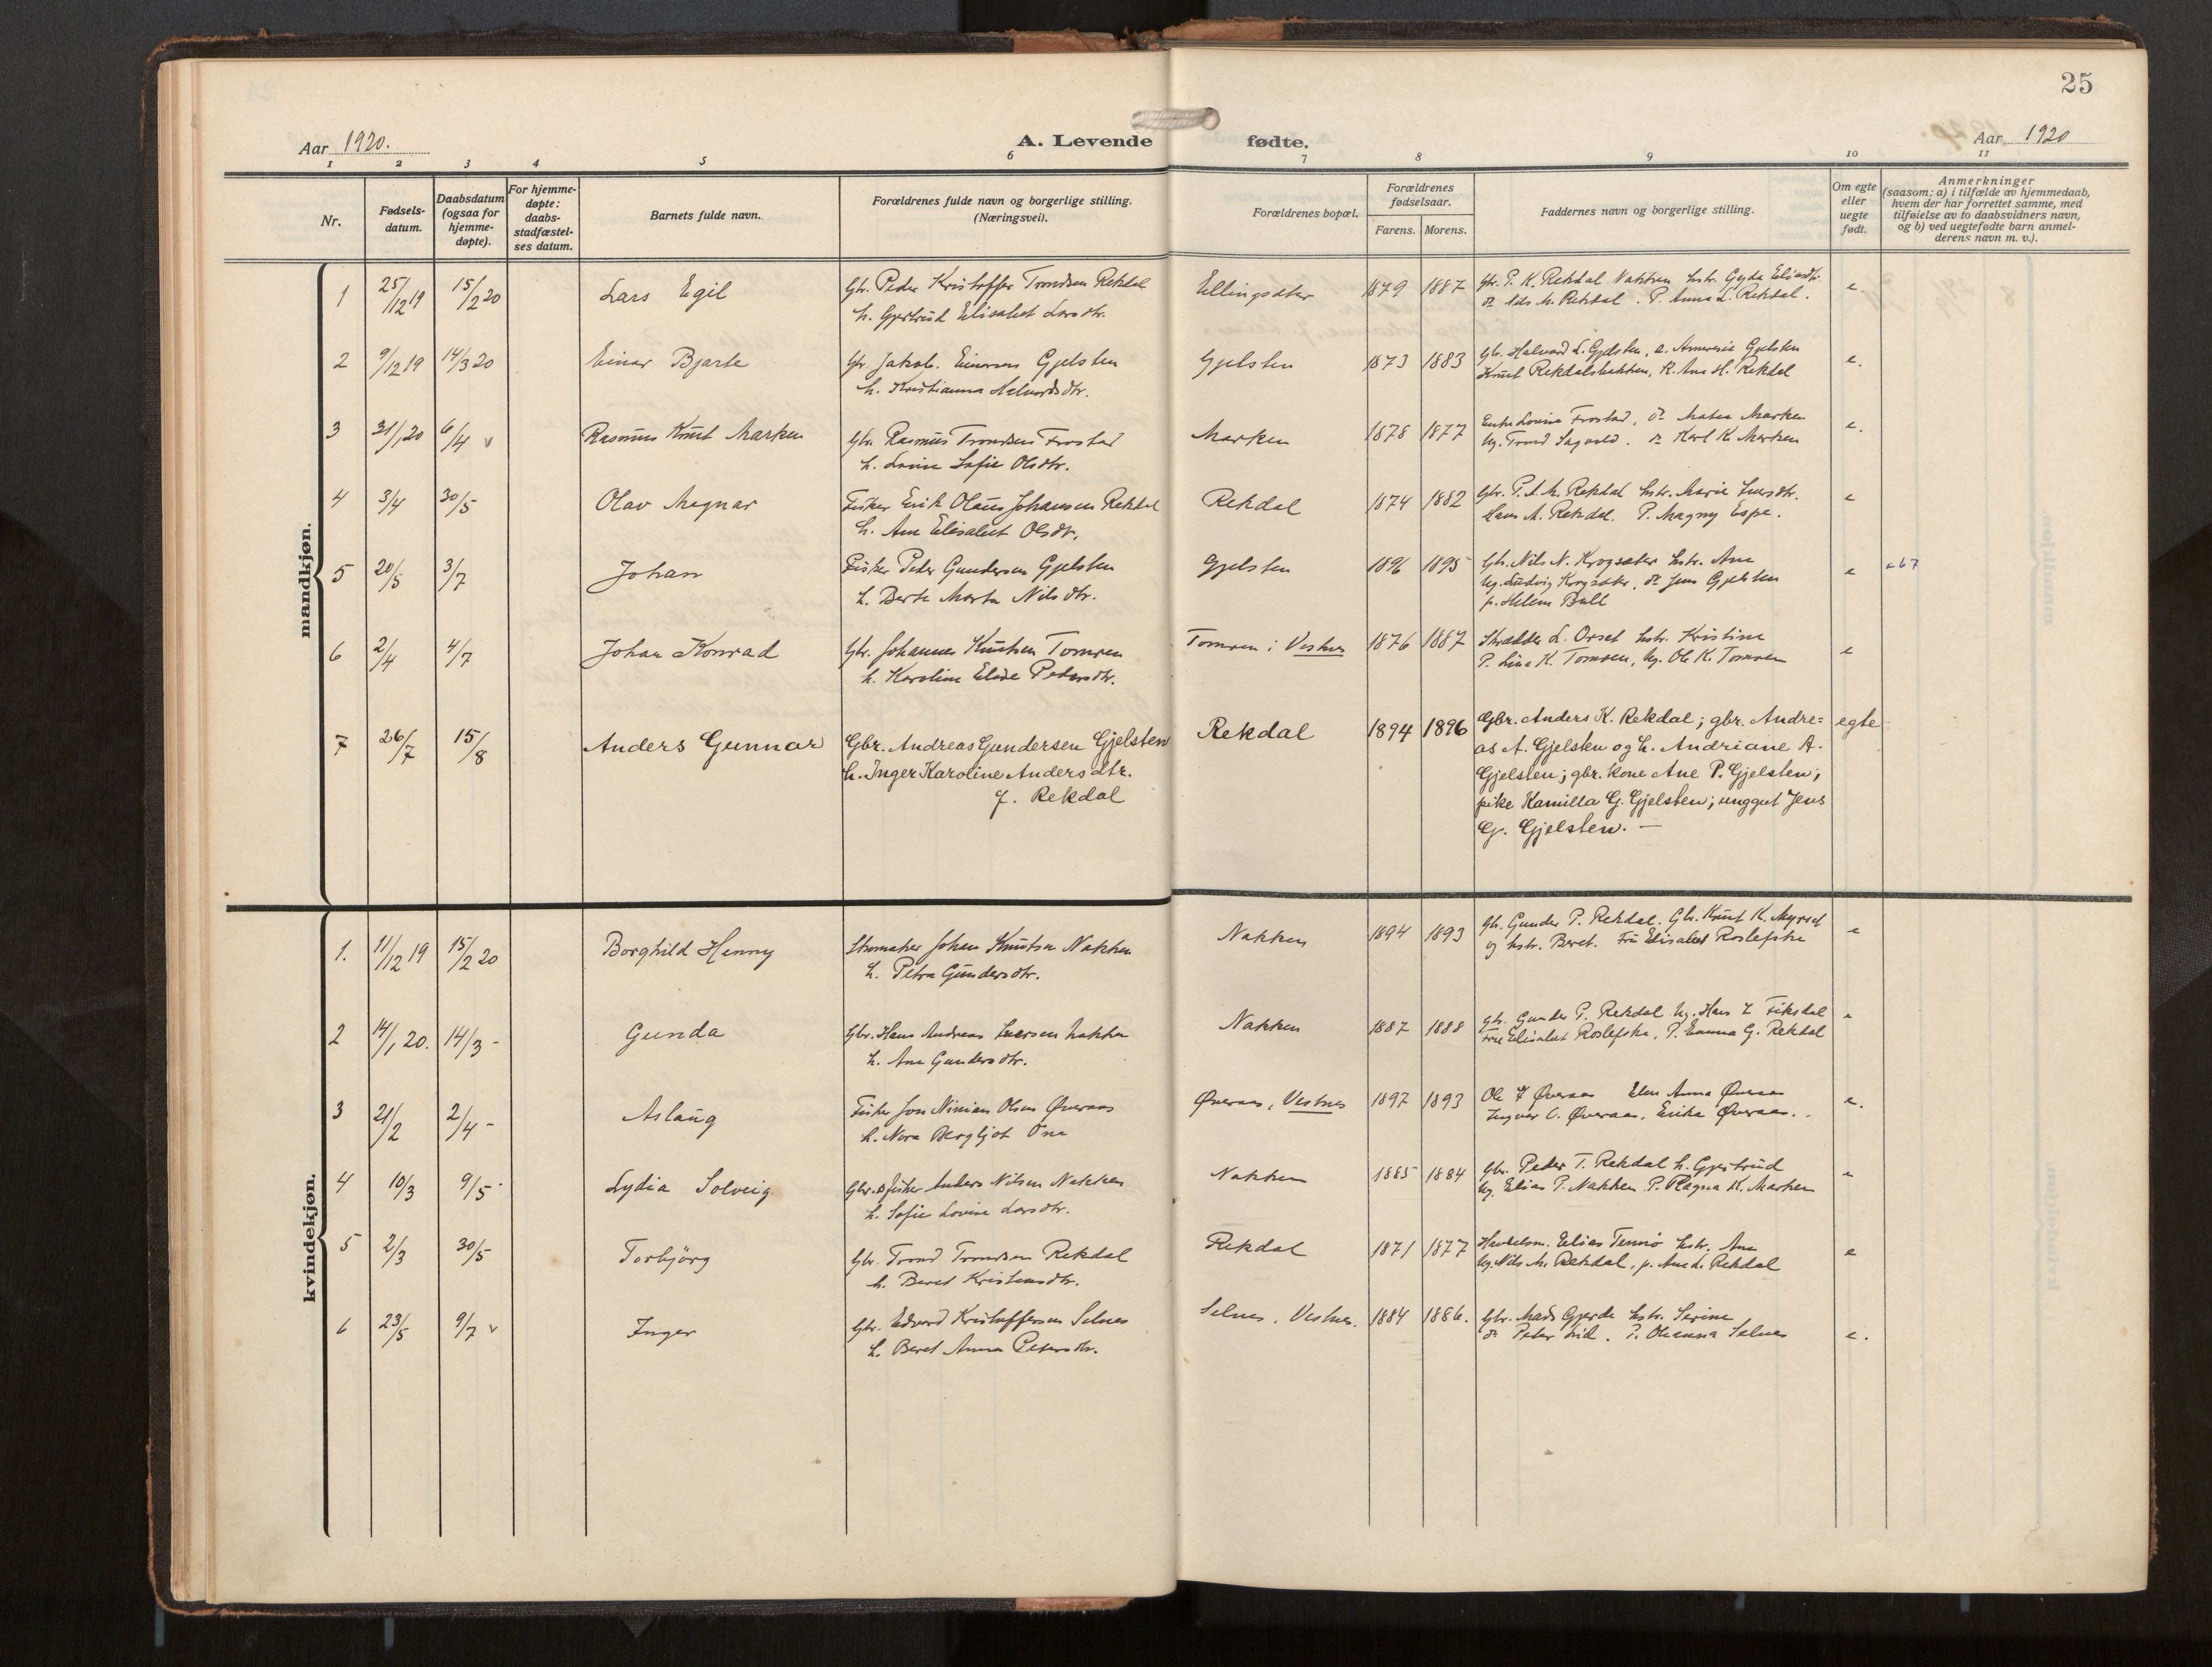 25
Aar 1920.
A. Levende fødte.
Aar 1920
1 2 3 4 5 6 7 8 9 10 11
Nr.
Fødsels-datum.
Daabsdatum (ogsaa for hjemme-døpte).
For hjemme-døpte: daabs-stadfæstel-ses datum.
Barnets fulde navn.
Forældrenes fulde navn og borgerlige stilling. (Næringsvei).
Forældrenes bopæl.
Forældrenes fødselsaar.
Farens. Morens.
Faddernes navn og borgerlige stilling.
Om egte eller uegte født.
Anmerkninger
(saasom: a) i tilfælde av hjemmedaab,
hvem der har forrettet samme, med
tilføielse av to daabsvidners navn,
og b) ved uegtefødte barn anmel-
derens navn m. v.).
mandkjøn.
1 25/12 19 15/2 20 Lars Egil Gbr. Peder Kristoffer Trondsen Rekdal Ellingsæter 1879 1887 Gbr. P. K. Rekdal Nakken hstr. Gyda Eliasdtr. e.
h. Gjertrud Elisabet Larsdtr. Nils M. Rekdal. P. Anna L. Rekdal.
2 9/12 19 14/3 20 Einar Bjarte Gbr. Jakob Einarsen Gjelsten Gjelsten 1873 1883 Gbr. Halvard L. Gjelsten, Gjelsten e.
h. Kristianna Halvardsdtr. Knut Rekdalsbakken, P. Ane H. Rekdal
3 31/1 20 6/4 v Rasmus Knut Marken Gbr. Rasmus Trondsen Frostad Marken 1878 1877 Enke Lovise Frostad, Marken e.
h. Lovise Sofie Olsdtr. Ug. Trond Sagvold. Karl K. Marken
4 3/4 30/5 Olav Magnar Fisker Erik Olaus Johansen Rekdal Rekdal 1874 1882 Gbr. P. A. M. Rekdal hstr. Marie e
h. Ane Elisabet Olsdtr. Lars A. Rekdal. P. Magny Espe.
5 20/5 3/7 Johan Fisker Peder Gundersen Gjelsten Gjelsten 1896 1895 Gbr. Nils N. Krogsæter hstr. Ane e
h. Berte Marta Nilsdtr. Ug. Ludvig Krogsæter, Jens Gjelsten
p. Helene Bull
6 2/4 4/7 Johan Konrad Gbr. Johannes Knutsen Tomren Tomren i Vestnes 1876 1887 Skrædder L. Orset hstr. Kristine e
h. Karoline Elide Pedersdtr. P. Lina K. Tomren, Ug. Ole K. Tomren
7 26/7 15/8 Anders Gunnar Gbr. Andreas Gundersen Gjelsten Rekdal 1894 1896 Gbr. Anders K. Rekdal; gbr. Andre= egte
h. Inger Karoline Andersdtr. as A. Gjelsten og h. Andriane A.
f. Rekdal Gjelsten; gbr. kone Ane P. Gjelsten;
pike Kamilla G. Gjelsten; unggut Jens
G. Gjelsten. —
kvindekjøn.
1. 11/12 19 15/2 20 Borghild Henny Skomaker Johan Knutsen Nakken Nakken 1894 1893 Gbr. Gunder P. Rekdal. Gbr. Knut K. Myrset e
h. Petra Gundersdtr. og hstr. Beret. Fru Elisabet
2 14/1 20. 14/3 - Gunda Gbr. Hans Andreas Iversen Nakken Nakken 1887 1888 Gbr. Gunder P. Rekdal Ug. Hans I Fiksdal e
h. Ane Gundersdtr. Fru Elisabet P. Emma G. Rekdal
3 21/2 2/4 - Aslaug Fisker Jon Ninian Olsen Øveraas Øveraas, Vestnes 1897 1893 Ole J Øveraas Anna Øveraas e.
h. Nora Bergljot Ona Ingvar O. Øveraas, Erika Øveraas.
4 10/3 9/5 - Lydia Solveig Gbr. & fisker Anders Nilsen Nakken Nakken 1885 1884 Gbr. Peder T. Rekdal h. Gjertrud e
h. Sofie Lovise Larsdtr. Ug. Elias P. Nakken P. Ragna K. Marken
5 2/3 30/5 Torbjörg Gbr. Trond Trondsen Rekdal Rekdal 1871 1877 Handelsm. Elias Tennø hstr. Ane e
h. Beret Kristensdtr. Ug. Nils M. Rekdal, p. Ane L. Rekdal
6 23/5 9/7 v Inger Gbr. Edvard Kristoffersen Selnes Selnes, Vestnes. 1884 1886. Gbr. Mads Gjerde hstr. Serine
h. Beret Anna Petersdtr. Peter Lid. P. Oleanna Selnes e.